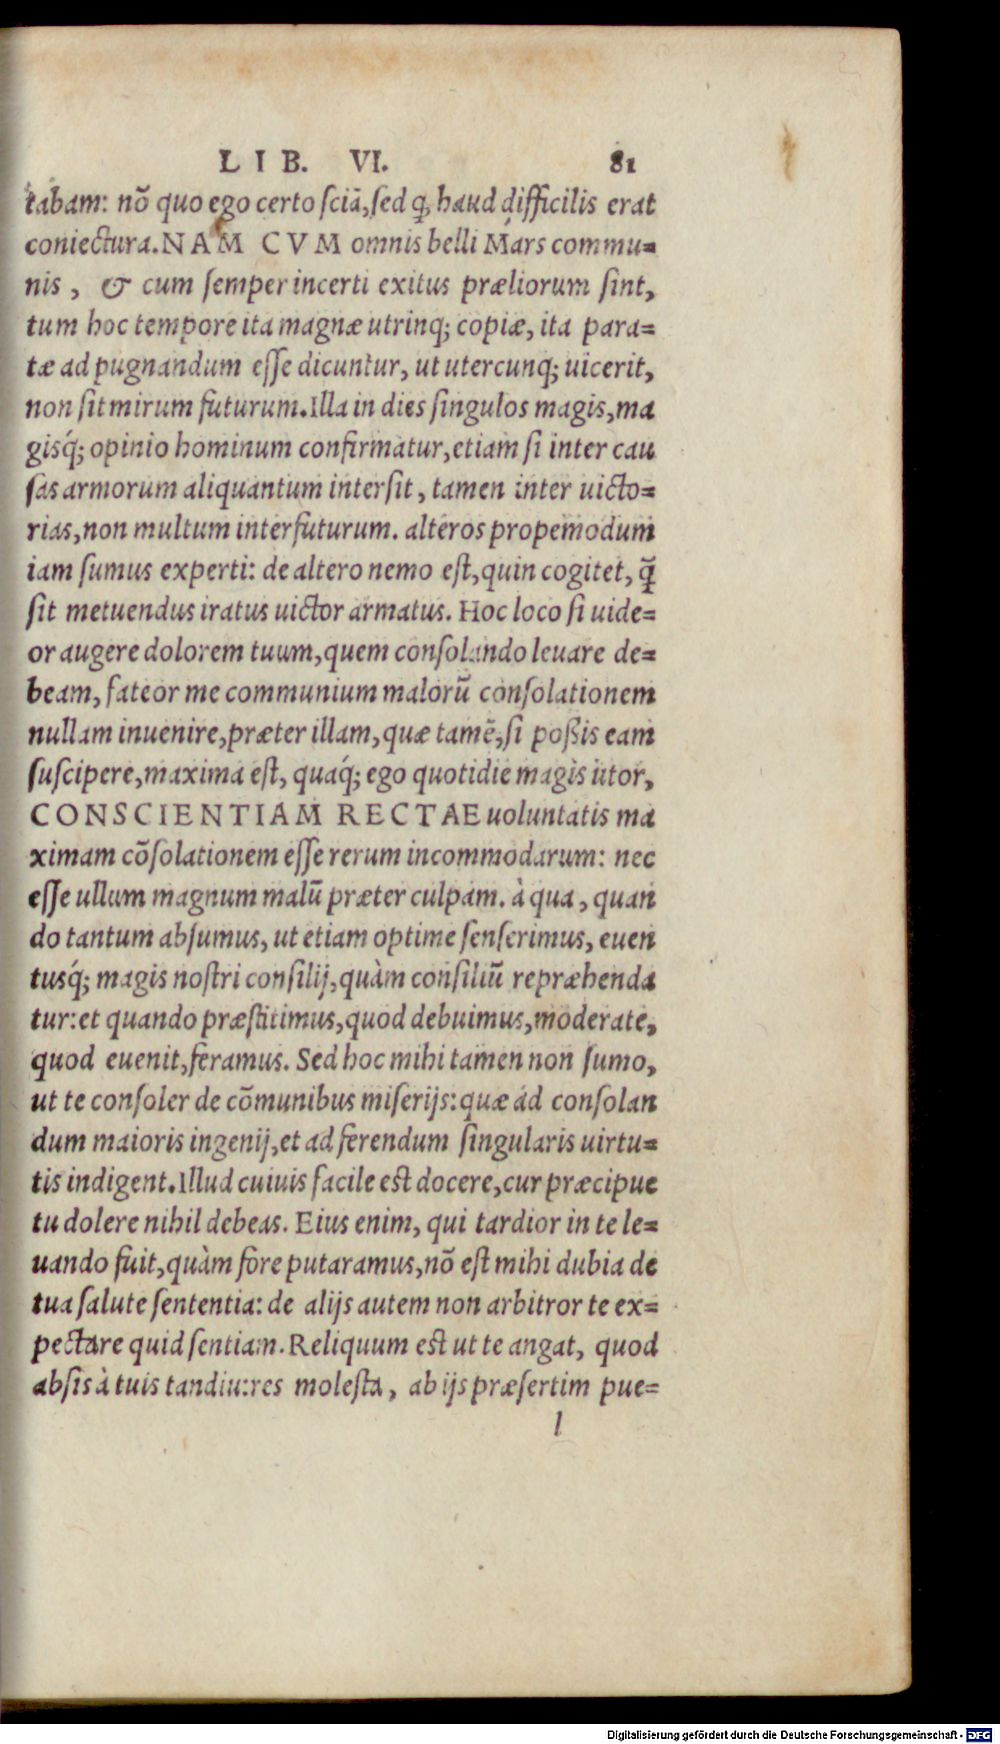 LIB. VI. 81
tabam: nõ quo ego certo sciã, sed q̃, haud difficilis erat
coniectura. NAM CVM omnis belli Mars commu=
nis, & cum semper incerti exitus præliorum sint,
tum hoc tempore ita magnæ utrinq; copiæ, ita para=
tæ ad pugnandum esse dicuntur, ut utercunq; uicerit,
non sit mirum futurum. Illa in dies singulos magis, ma
gisq́; opinio hominum confirmatur, etiam si inter cau
sas armorum aliquantum intersit, tamen inter uicto=
rias, non multum interfuturum. alteros propemodum
iam sumus experti: de altero nemo est, quin cogitet, q̃
sit metuendus iratus uictor armatus. Hoc loco si uide=
or augere dolorem tuum, quem consolando leuare de=
beam, fateor me communium malorũ consolationem
nullam inuenire, præter illam, quæ tamẽ, si poßis eam
suscipere, maxima est, quaq́; ego quotidie magis utor,
CONSCIENTIAM RECTAE uoluntatis ma
ximam cõsolationem esse rerum incommodarum: nec
esse ullum magnum malũ præter culpam. à qua, quan
do tantum absumus, ut etiam optime senserimus, euen
tusq́; magis nostri consilij, quàm consiliũ repræhenda
tur: et quando præstitimus, quod debuimus, moderate,
quod euenit, feramus. Sed hoc mihi tamen non sumo,
ut te consoler de cõmunibus miserijs: quæ ad consolan
dum maioris ingenij, et ad ferendum singularis uirtu=
tis indigent. Illud cuiuis facile est docere, cur præcipue
tu dolere nihil debeas. Eius enim, qui tardior in te le=
uando fuit, quàm fore putaramus, nõ est mihi dubia de
tua salute sententia: de alijs autem non arbitror te ex=
pectare quid sentiam. Reliquum est ut te angat, quod
absis à tuis tandiu: res molesta, ab ijs præsertim pue=
l
Digitalisierung gefördert durch die Deutsche Forschungsgemeinschaft - DFG